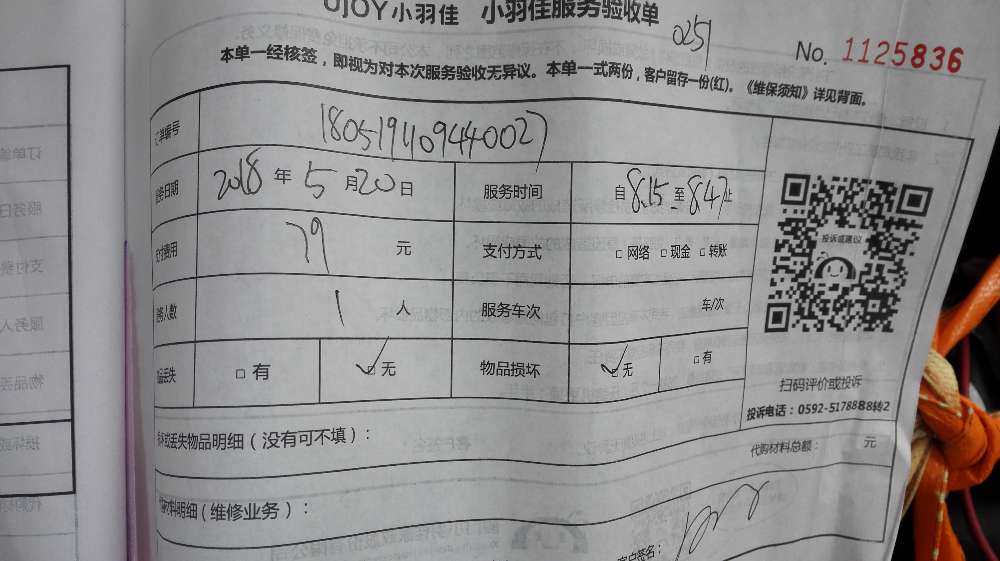 UJOY小羽佳 小羽佳服务验收单
0251
No. 1125836
本单一经核签，即视为对本次服务验收无异议。本单一式两份，客户留存一份(红)。《维保须知》详见背面。
订单编号 180519409440027
服务日期 2018年5月20日 服务时间 自8.15至8.47止
支付费用 79元 支付方式 □网络 □现金 □转账
服务人数 1人 服务车次 车/次
物品丢失 □有 ☑无 物品损坏 ☑无 □有
投诉或建议
扫码评价或投诉
投诉电话：0592-5178888转2
损坏或丢失物品明细（没有可不填）：
代购材料总额： 元
代购材料明细（维修业务）：
客户签名：